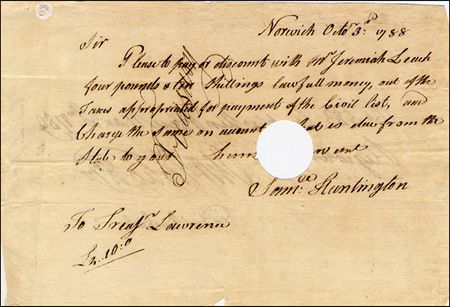 Norwich Octo.r 3.d 1788
Sir
Please to pay or discount with Mr. Jeremiah Leach
four pounds & ten Shillings lawfull money, out of the
Taxes appropriated for payment of the Civil list, and
Charge the Same on account is due from the
State to your
Sam.el Huntington
To Treas.r Lawrence
£4..10:0